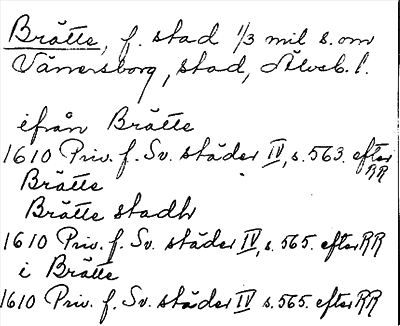 Brätte, f. stad 1/3 mil s. om
Vänersborg, stad, Älvsb. l.
ifrån Brätte
1610 Priv. f. Sv. städer IV, s. 563. efter RR
Brätte
Brätte stadh
1610 Priv. f. Sv. städer IV, s. 565. efter RR
i Brätte
1610 Priv. f. Sv. städer IV s. 565. efter RR